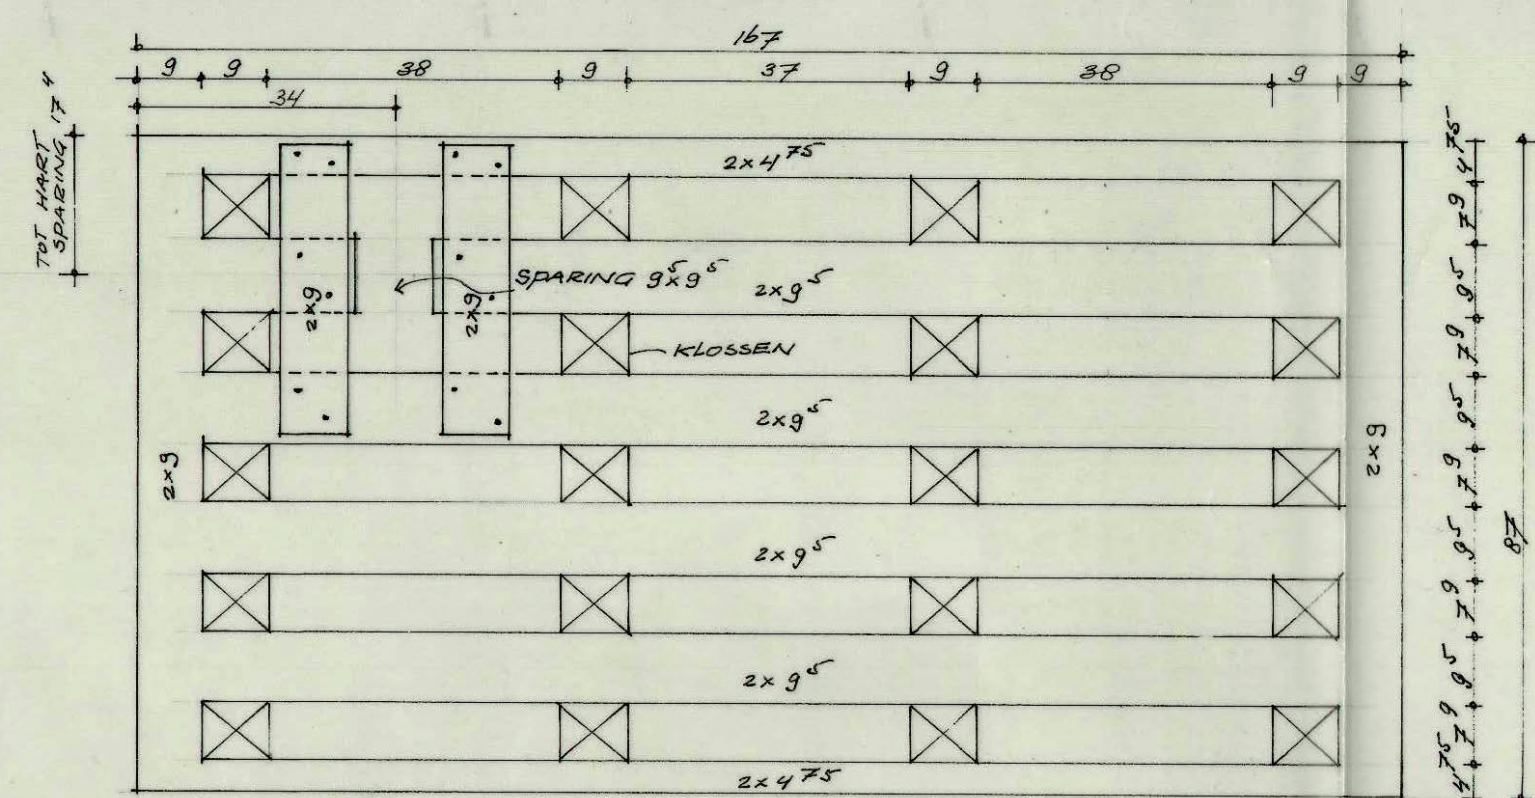 167
9 9 38 9 37 9 38 9 9
34
TOT HART
SPARING 17⁴
2×4⁷⁵
SPARING 9⁵×9⁵
2×9⁵
2×9
2×9
KLOSSEN
2×9⁵
2×9
2×9
2×9⁵
2×9⁵
2×4⁷⁵
4⁷⁵ 7⁹ 9⁵ 7⁹ 9⁵ 7⁹ 9⁵ 7⁹ 9⁵ 7⁹ 4⁷⁵
87